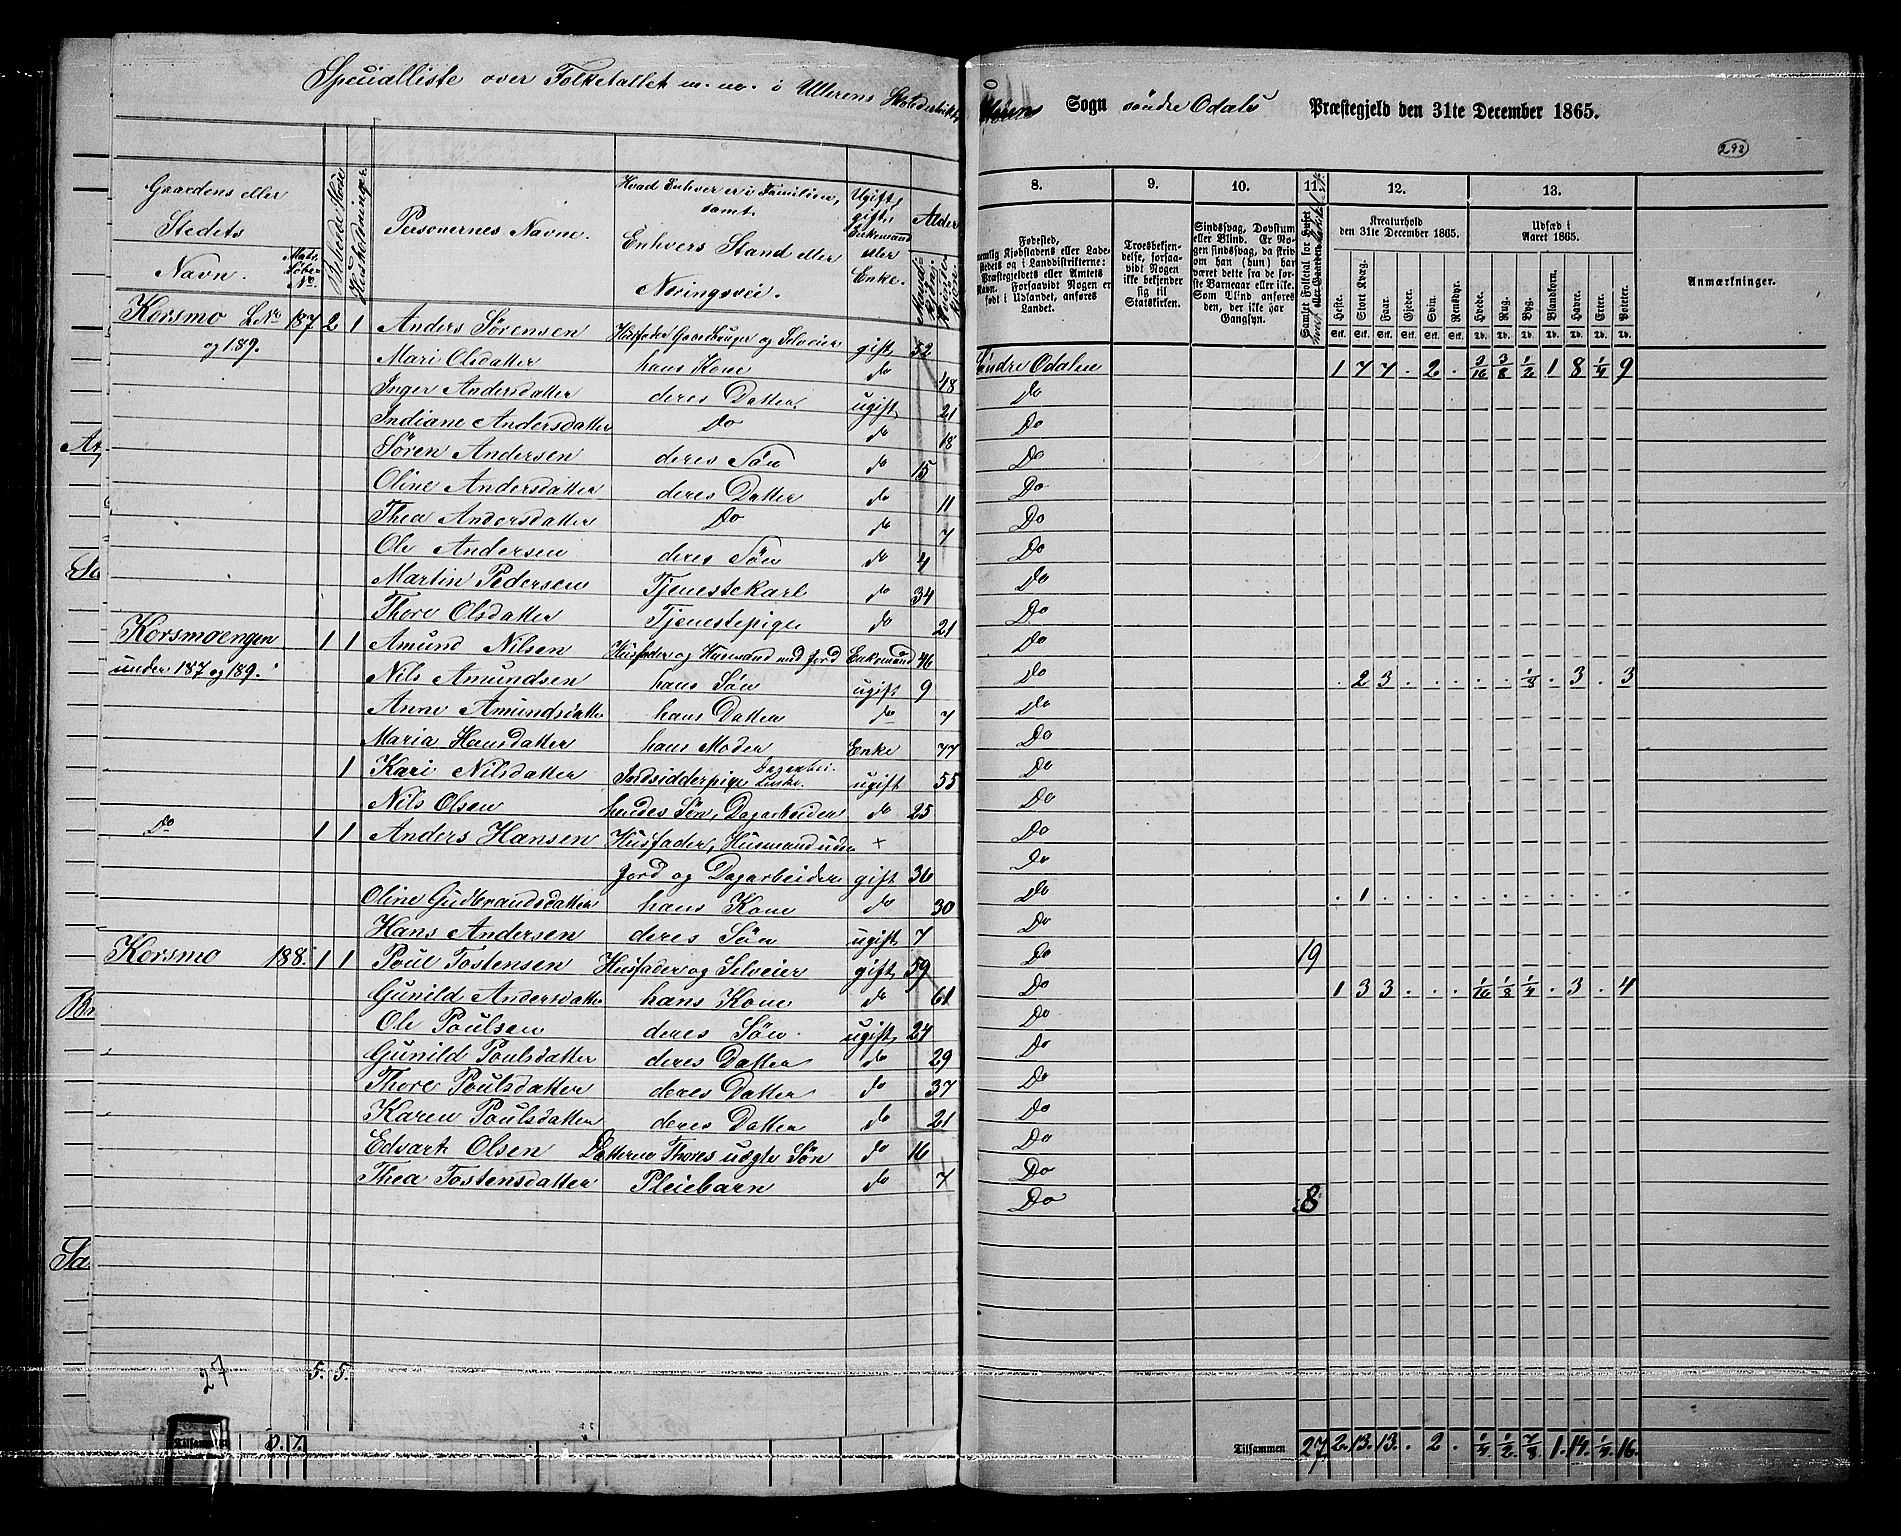 Specialliste over Folketallet m. m. i Ullerens Skoledistrikt,
Sogn søndre Odals Præstegjeld den 31te December 1865.
292
Gaardens eller Stedets Navn.
Matr. Løbe- No
Beboede Huse
Huusholdninger.
Personernes Navne.
Hvad Enhver er i Familien, samt Enhvers Stand eller Næringsvei.
Ugift, gift, Enkemand eller Enke.
Alder
8. 9. 10. 11. 12. 13.
Fødested,
nemlig Kjøbstadens eller Ladestedets og i Landdistrikterne: Præstegjeldets eller Amtets Navn. Forsaavidt Nogen er født i Udlandet, anføres Landet.
Troesbekjendelse, forsaavidt Nogen ikke bekjender sig til Statskirken.
Sindssvag, Døvstum eller Blind. Er Nogen sindssvag, da skrives om han (hun) har været dette fra de første Barneaar eller ikke. Som Blind anføres den, der ikke har Gangsyn.
Kreaturhold den 31te December 1865.
Heste. Stort Kvæg. Faar. Gjeder. Svin. Rensdyr.
Udsæd i Aaret 1865.
Hvede. Rug. Byg. Blandkorn. Havre. Erter. Poteter.
Anmærkninger.
Korsmo LNo 187 2 1 Anders Sørensen Husfader Gaardbruger og Selveier gift 52 Søndre Odalen 1 7 7 . 2 . 3/16 3/8 1/2 1 8 1/4 9
og 189. Mari Olsdatter hans Kone do 48 Do
Inger Andersdatter deres Datter ugift 21 Do
Indiane Andersdatter Do do 18 Do
Sören Andersen deres Søn do 15 Do
Oline Andersdatter deres Datter do 11 Do
Thea Andersdatter Do do 7 Do
Ole Andersen deres Søn do 4 Do
Martin Pedersen Tjenestekarl do 34 Do
Thore Olsdatter Tjenestepige do 21 Do
Korsmoengen 1 1 Amund Nilsen Husfader og Husmand med Jord Enkemand 46 Do . 2 3 . . . . . 1/8 . 3 . 3
under 187 og 189. Nils Amundsen hans Søn ugift 9 Do
Anne Amundsdatter hans Datter do 7 Do
Maria Hansdatter hans Moder Enke 77 Do
1 Kari Nilsdatter Indsidderpige ugift 55 Do
Nils Olsen hendes Søn, Dagarbeider do 25 Do
Do 1 1 Anders Hansen Husfader, Husmand uden +
Jord og Dagarbeider gift 36 Do . 1 . . . . . . . . . . .
Oline Gudbrandsdatter hans Kone do 30 Do
Hans Andersen deres Søn ugift 7 Do 19
Korsmo 188. 1 1 Poul Tostensen Husfader og Selveier gift 59 Do 1 3 3 . . . 1/16 1/8 1/4 . 3 . 4
Gunild Andersdatter hans Kone do 61 Do
Ole Poulsen deres Søn ugift 24 Do
Gunild Poulsdatter deres Datter do 29 Do
Thore Poulsdatter deres Datter do 37 Do
Karen Poulsdatter deres Datter do 21 Do
Edvart Olsen Datteren Thores uægte Søn do 16 Do
Thea Tostensdatter Pleiebarn do 7 Do 8
27 5. 5.
Tilsammen 27 2. 13. 13. . 2 . 1/4 1/2 7/8 1. 14. 1/4 16.